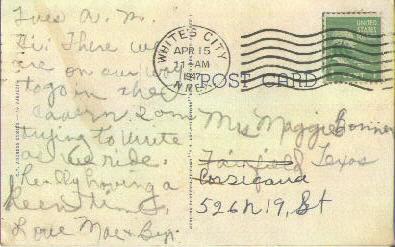 Tues A. M.
Hi There we
are on our way
to go in the
cavern I am
trying to write
as we ride.
Really having a
keen time,
Love Mae & Ben.
WHITE'S CITY
APR 15
11 AM
1947
N.MEX.
POST CARD
UNITED
STATES
Mrs Maggie Bonner
Fairfield Texas
Corsicana
526 N 19, St